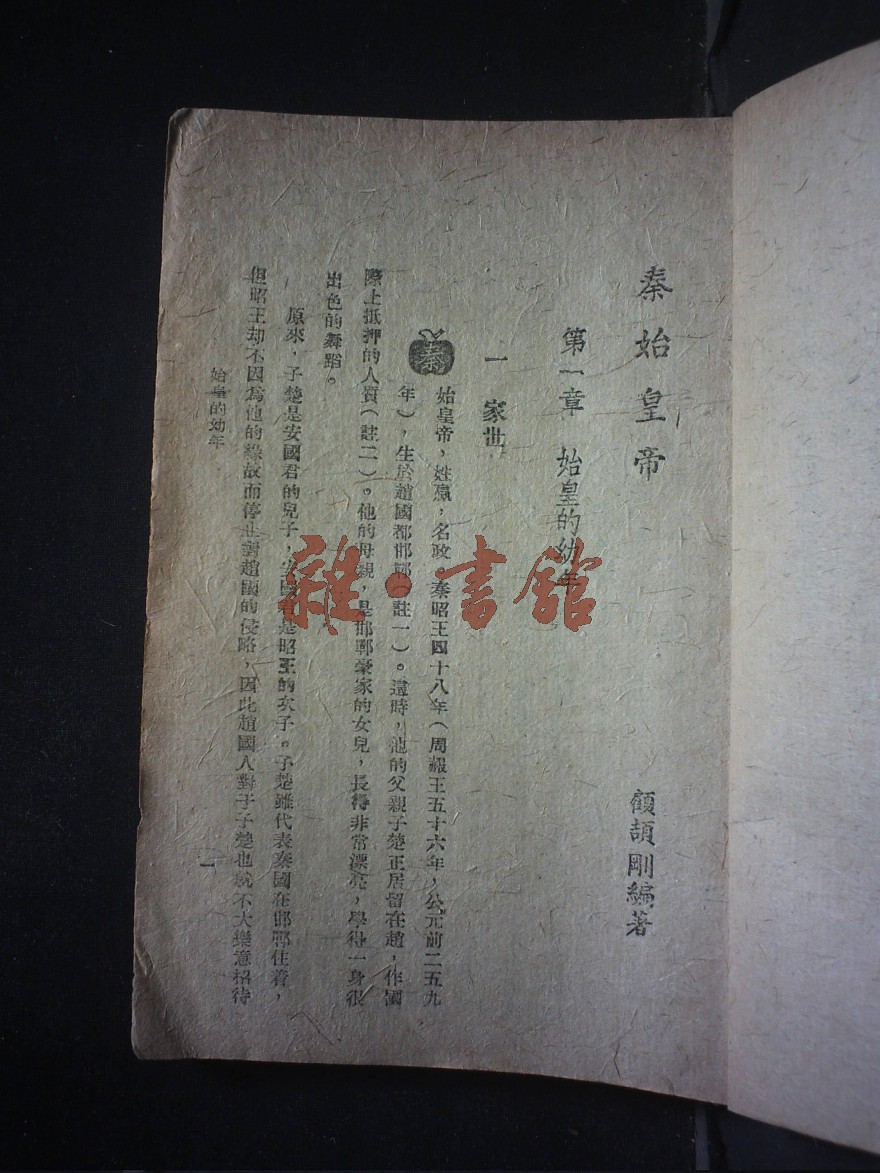 秦始皇帝
顧頡剛編著
第一章 始皇的幼年
一 家世
秦始皇帝，姓嬴，名政。秦昭王四十八年（周赧王五十六年，公元前二五九
年），生於趙國都邯鄲（註一）。這時，他的父親子楚正居留在趙，作國
際上抵押的人質（註二）。他的母親，是邯鄲豪家的女兒，長得非常漂亮，學得一身很
出色的舞蹈。
原來，子楚是安國君的兒子，安國君是昭王的次子。子楚雖代表秦國在邯鄲住着，
但昭王却不因為他的緣故而停止對趙國的侵略，因此趙國人對于子楚也就不大樂意招待
始皇的幼年
一
雜·書館